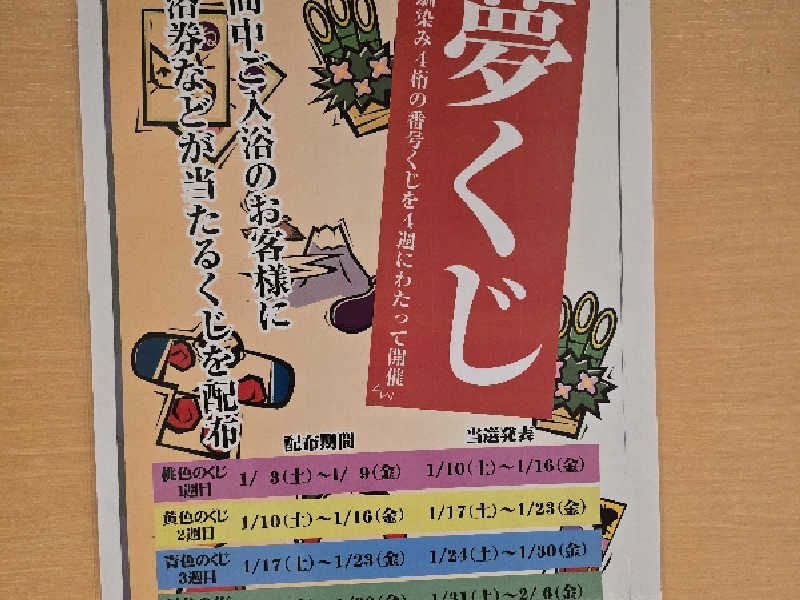 夢くじ
馴染み4桁の番号くじを4週にわたって開催
間中ご入浴のお客様に
浴券などが当たるくじを配布
配布期間 当選発表
桃色のくじ 1週目 1/ 3(土)~1/ 9(金) 1/10(土)~1/16(金)
黄色のくじ 2週目 1/10(土)~1/16(金) 1/17(土)~1/23(金)
青色のくじ 3週目 1/17(土)~1/23(金) 1/24(土)~1/30(金)
1/31(土)~2/ 6(金)